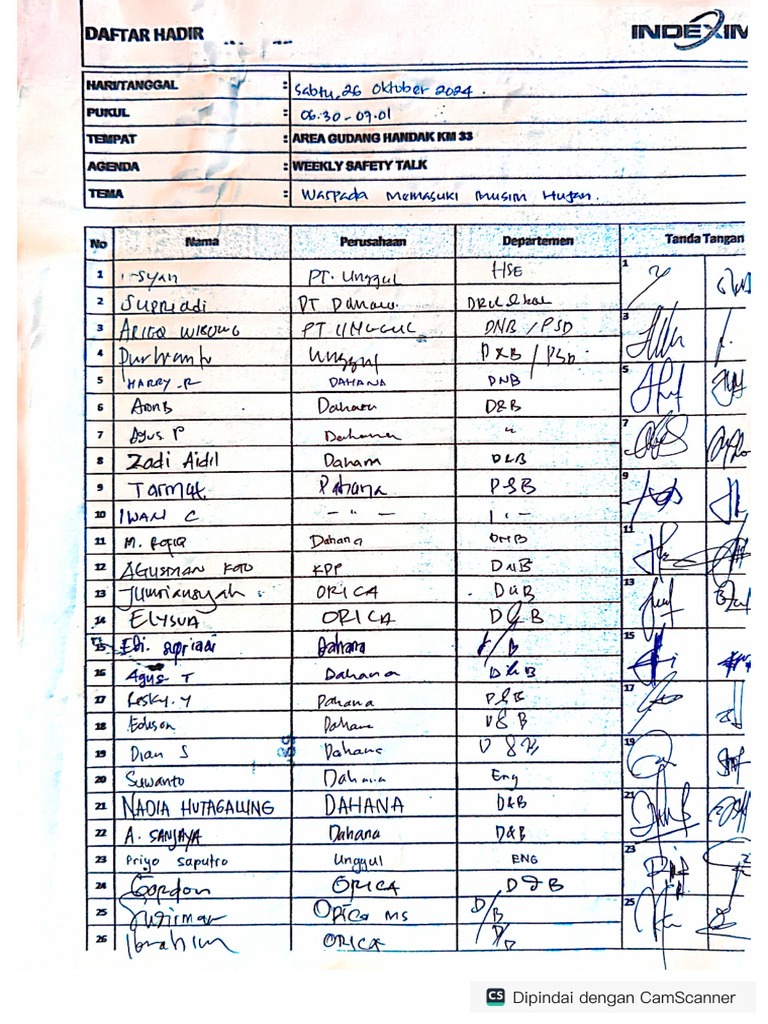 DAFTAR HADIR
INDEXIM
HARI/TANGGAL : Sabtu, 26 Oktober 2024.
PUKUL : 06.30 - 07.01
TEMPAT : AREA GUDANG HANDAK KM 33
AGENDA : WEEKLY SAFETY TALK
TEMA : Waspada Memasuki Musim Hujan.
No Nama Perusahaan Departemen Tanda Tangan
1 PT. Unggul HSE 1
2 Supriadi PT Dahana
3 WIBOWO PT UNGGUL DNB / PSD 3
4 Unggul D&B / PSD
5 HARRY.R DAHANA DNB 5
6 Dahana D&B
7 Agus P Dahana " 7
8 Zadi Aidil Dahana D&B
9 Tarmat Dahana D&B 9
10 IWAN C - " - - " -
11 M. ROFIQ Dahana DNB 11
12 AGUSMAN KPP DNB
13 Jumriansyah ORICA D&B 13
14 ELYSUA ORICA D&B
15 Edi. supriadi Dahana D/B 15
16 Agus T Dahana D&B
17 Resky.Y Dahana D&B 17
18 Edison Dahana D&B
19 Dian S Dahana D&B 19
20 Suwanto Dahana Eng
21 NADIA HUTAGALUNG DAHANA D&B 21
22 A. SANJAYA Dahana D&B
23 Priyo Saputro Unggul ENG 23
24 Gordon ORICA D&B
25 Sudirman Orica MS D/B 25
26 Ibrahim ORICA D/B
CS Dipindai dengan CamScanner